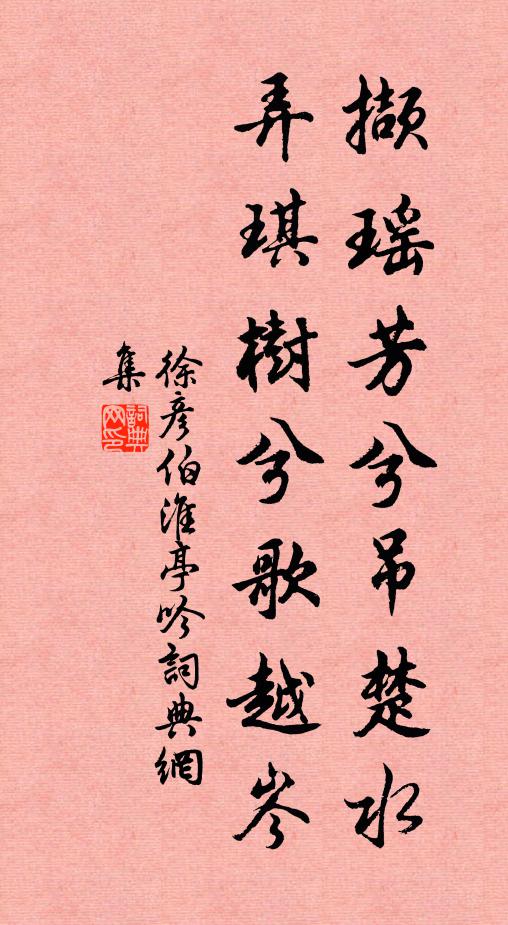 擷瑶芳兮吊楚水
弄琪樹兮歌越岑
徐彦伯淮亭吟詞典網
集
詞典网印